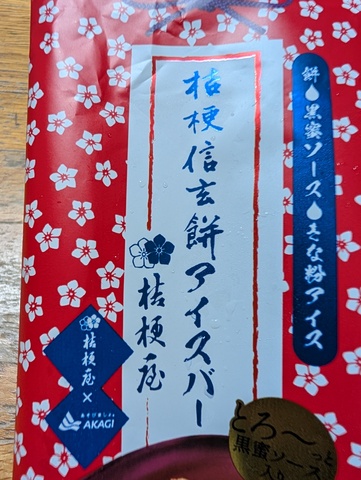 餅💧黒蜜ソース💧きな粉アイス
桔梗信玄餅アイスバー
桔梗屋
桔梗屋
×
あそびましょ。
AKAGI
とろ〜っと
黒蜜ソース
入り